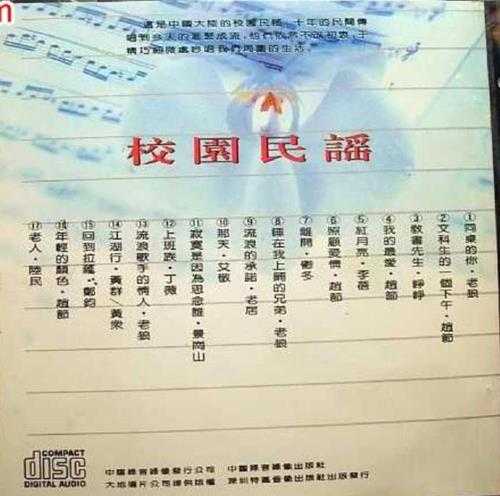 這是中國大陸的校園民謠，十年的民間傳
唱到今天的
校園民謠
①同桌的你·老狼
②文科生的一個下午·趙節
③教書先生·
④我的最愛·趙節
⑤紅月亮·李蓓
⑥照顧愛情·趙節
⑦離開·鬱冬
⑧睡在我上鋪的兄弟·老狼
⑨流浪的承諾·老唐
⑩那天·艾敬
⑪寂寞是因為思念誰·景崗山
⑫上班族·丁薇
⑬流浪歌手的情人·老狼
⑭江湖行·黃群／黃衆
⑮回到拉薩·鄭鈞
⑯年輕的顏色·趙節
⑰老人·陸民
COMPACT
disc
DIGITAL AUDIO
中國錄音錄像發行公司 中國錄音錄像出版社
大地唱片公司提供版權 深圳特區音像出版社出版發行